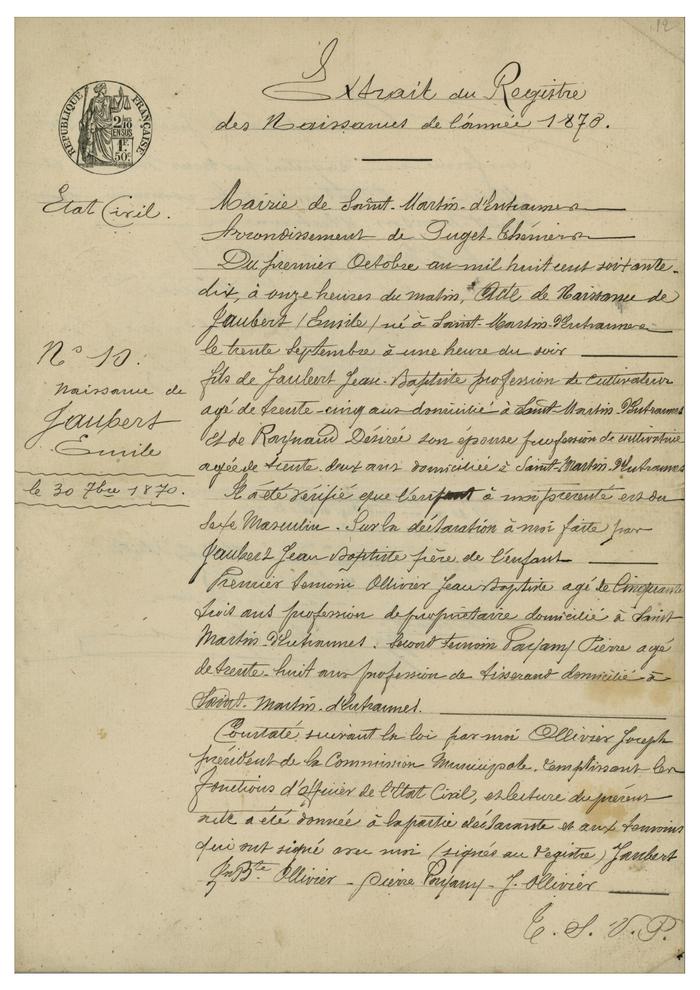 12
Extrait du Registre
des Naissances de l'année 1870.
RÉPUBLIQUE FRANÇAISE
2/10
EN SUS
1F.
50c.
Etat Civil.
Mairie de Saint-Martin-d'Entraunes
Arrondissement de Puget-Théniers
Du premier Octobre an mil huit cent soixante-
dix, à onze heures du matin, Acte de Naissance de
Jaubert (Emile) né à Saint-Martin-d'Entraunes
le trente Septembre à une heure du soir
fils de Jaubert Jean-Baptiste profession de cultivateur
agé de trente-cinq ans domicilié à Saint-Martin-d'Entraunes
et de Raynaud Désirée son épouse profession de cultivatrice
agée de trente-deux ans domiciliée à Saint-Martin-d'Entraunes
Il a été vérifié que l'enfant à moi présenté est du
Sexe Masculin. Sur la déclaration à moi faite par
Jaubert Jean Baptiste père de l'enfant
Premier témoin Ollivier Jean Baptiste agé de Cinquante
trois ans profession de propriétaire domicilié à Saint
Martin-d'Entraunes. Second témoin Payany Pierre agé
de trente-huit ans profession de tisserand domicilié à
Saint-Martin-d'Entraunes.
Constaté suivant la loi par moi Ollivier Joseph
président de la Commission Municipale, remplissant les
fonctions d'officier de l'Etat Civil, et lecture du présent
acte a été donnée à la partie déclarante et aux témoins
qui ont signé avec moi (signés au registre) Jaubert
Jn Bte Ollivier - pierre Payany - J. Ollivier
T. S. V. P.
N° 10.
Naissance de
Jaubert
Emile
le 30 7bre 1870.